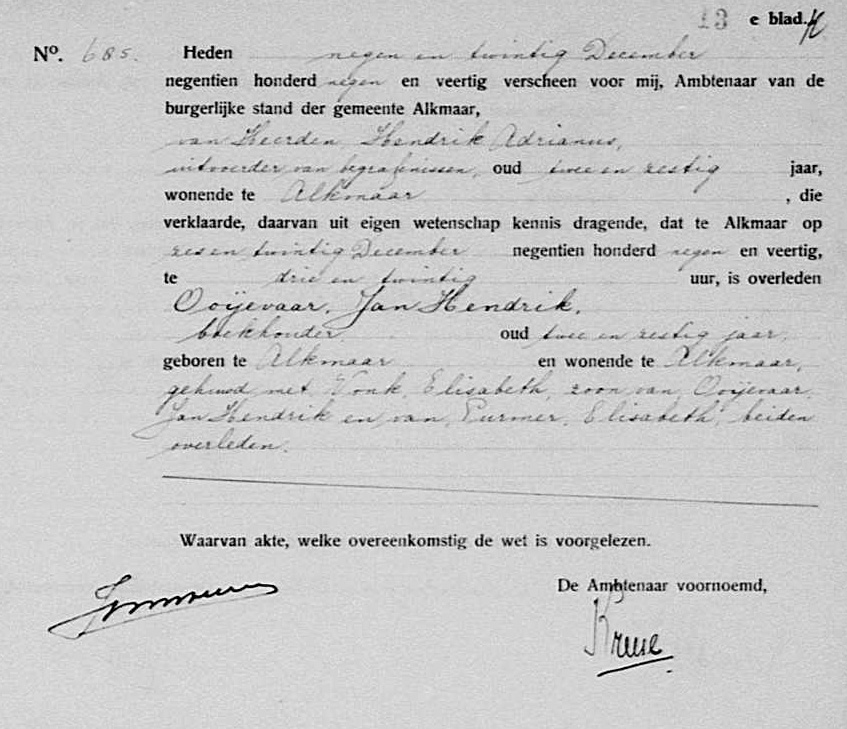 13 e blad.
Nº. 685. Heden negen en twintig December
negentien honderd negen en veertig verscheen voor mij, Ambtenaar van de
burgerlijke stand der gemeente Alkmaar,
van Heerden, Hendrik Adrianus,
uitvoerder van begrafenissen, oud twee en zestig jaar,
wonende te Alkmaar , die
verklaarde, daarvan uit eigen wetenschap kennis dragende, dat te Alkmaar op
zes en twintig December negentien honderd negen en veertig,
te drie en twintig uur, is overleden
Ooijevaar, Jan Hendrik,
boekhouder, oud twee en zestig jaar,
geboren te Alkmaar en wonende te Alkmaar,
gehuwd met Vonk, Elisabeth, zoon van Ooijevaar,
Jan Hendrik en van Purmer, Elisabeth, beiden
overleden.
Waarvan akte, welke overeenkomstig de wet is voorgelezen.
De Ambtenaar voornoemd,
Kruse